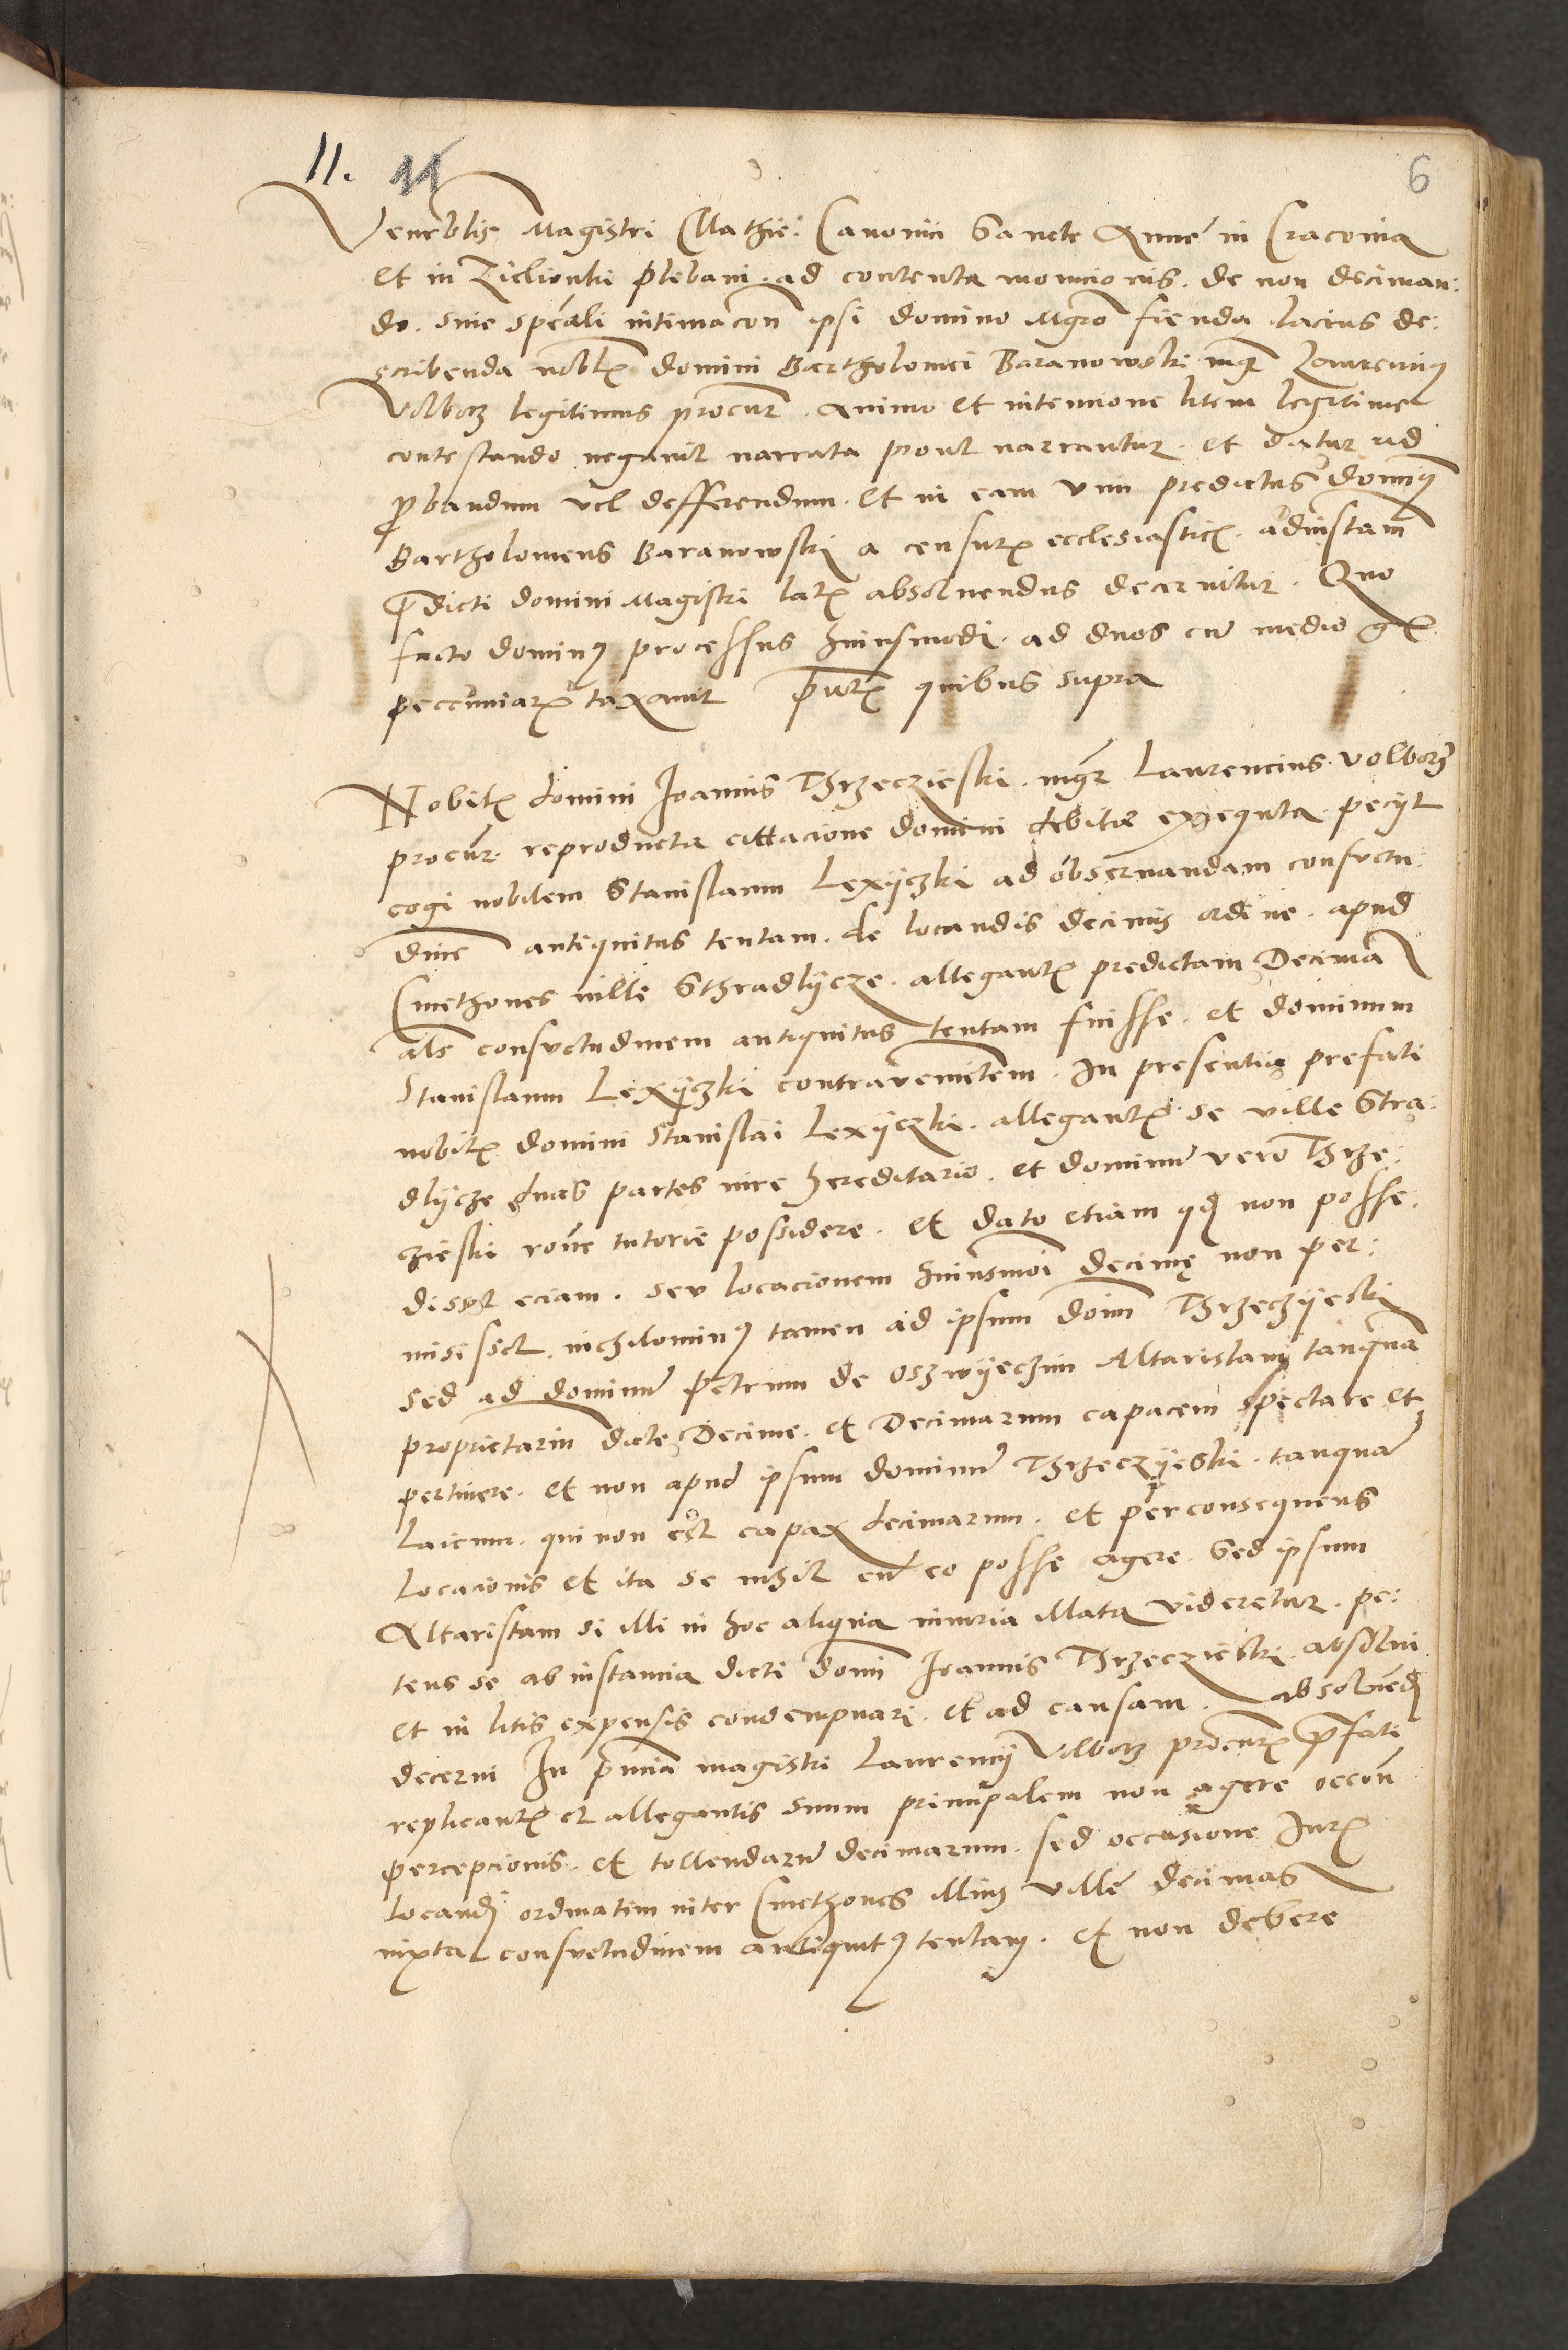 11. 11 6
Venerblis Magistri Mathie. Canonici Sancte Anne in Cracovia
et in Zielionki plebani. ad contenta monicionis. de non deciman:
do. sine speciali intimacon ipsi domino Mgro fienda lacius de:
scribenda nobilis domini Bartholomei Baranowski mgr Laurencius
Volborz legitimus procur. animo et intencione litem legitime
contestando negavit narrata prout narrantur. et datur ad
probandum vel defferendum. et in eam vim predictus dominus
Bartholomeus Baranowski a censuris ecclesiasticis. ad instam
predicti domini Magistri latis absolvendus decernitur. Quo
facto dominus processus huiusmodi. ad duos cum medio gr.
pecuniarum taxavit pntibus quibus supra
Nobilis domini Joannis Thrzeczieski. mgr Laurencius volborz
procur. reproducta cittacione domini debite exequta. peciit
cogi nobilem Stanislaum Lexyczki ad observandam consvetu:
dine antiquitus tentam. de locandis decimis ordine. apud
Cmethones ville Sthradlycze. allegantis predictam Decima
als consvetudinem antiquitus tentam fuisse. et dominum
Stanislaum Lexyczki contravenientem. In presentia prefati
nobilis domini Stanislai Lexyczki. allegantis se ville Stra:
dlycze duas partes iure hereditario. et dominum vero Thrze:
czieski rone tutorie possidere. et dato etiam quod non posse:
disset eciam. sev locacionem huiusmoi decime non per:
misisset. nichilominus tamen ad ipsum domi Thrzeczyeski
sed ad dominum petrum de Oszwyeczim Altaristam tanquam
proprietarium dicte Decime. et Decimarum capacem spectare et
pertinere. et non apud ipsum dominum Thrzeczyeski. tanquam
laicum. qui non est capax decimarum. et per consequens
locacionis et ita se nihil cum eo posse agere. Sed ipsum
Altaristam si illi in hoc aliqua iniuria illata videretur. pe:
tens se ab instancia dicti domi Joannis Thrzeczieski. absolvi
et in litis expensis condempnari. et ad causam. absolvendum
decerni In pncia magistri Laurencii Volborz procuris prefati
replicantis et allegantis suum principalem non agere occon
percepcionis. et tollendarum decimarum. sed occasione Iuris
locandi ordinatim inter Cmethones illius ville decimas
iuxta consvetudinem antiquitus tentam. et non debere